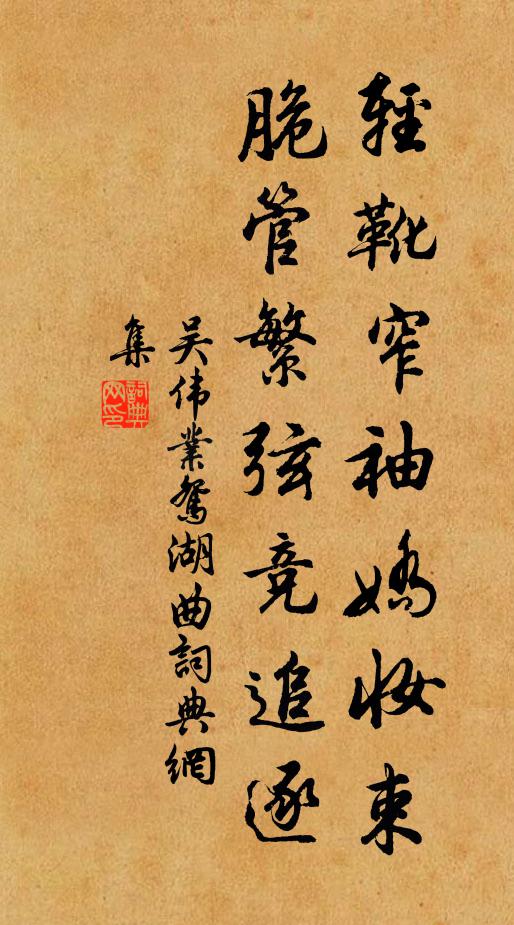 輕靴窄袖嬌妝束
脆管繁弦竞追逐
吴伟業鴛湖曲詞典網
集
詞典網印